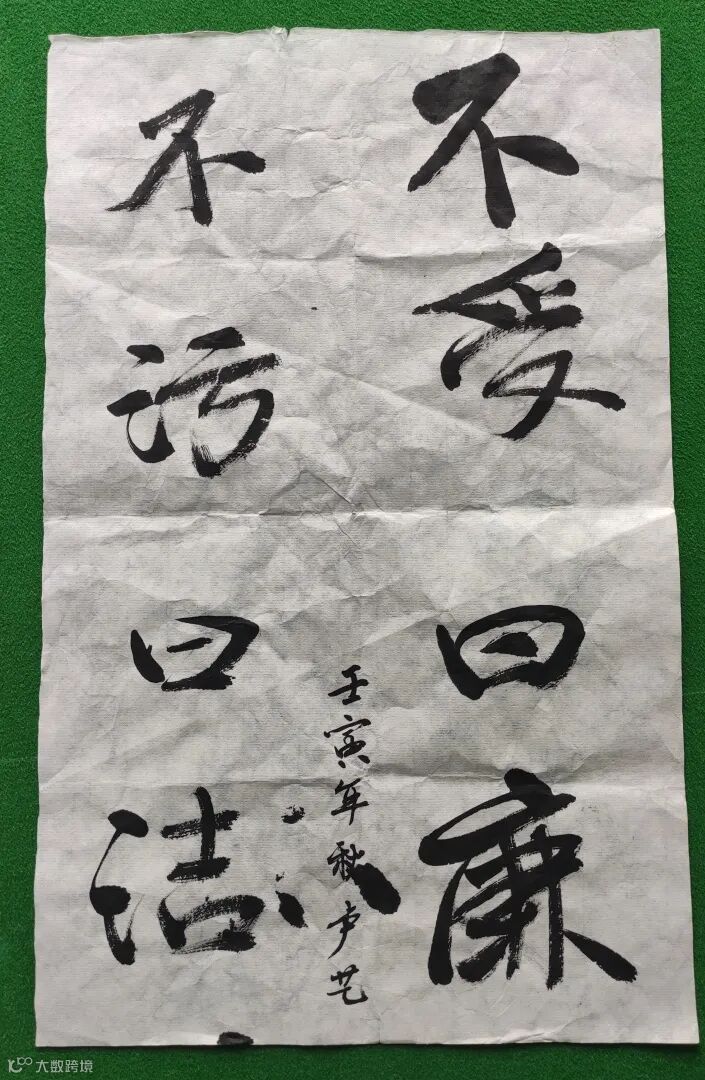 不受曰廉
不污曰洁
壬寅年秋卢艺
大数跨境